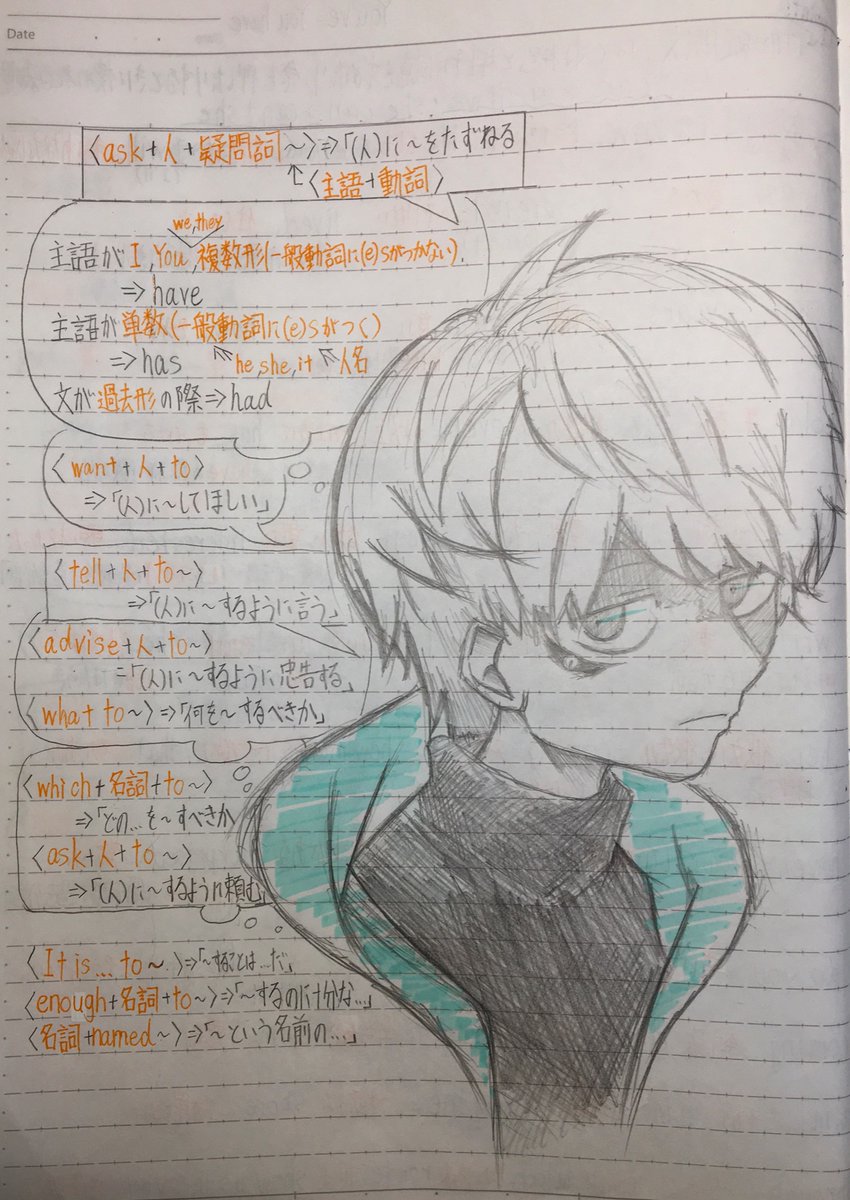 Date
〈ask+人+疑問詞~〉⇒「(人)に~をたずねる
〈主語+動詞〉
we,they
主語が I,You,複数形(一般動詞に(e)sがつかない).
⇒have
主語が単数(一般動詞に(e)sがつく)
⇒has he,she,it 人名
文が過去形の際⇒had
〈want+人+to〉
⇒「(人)に~してほしい」
〈tell+人+to~〉
⇒「(人)に~するように言う」
〈advise+人+to~〉
=「(人)に~するように忠告する」
〈what to~〉⇒「何を~するべきか」
〈which+名詞+to~〉
⇒「どの…を~すべきか
〈ask+人+to~〉
⇒「(人)に~するように頼む」
〈It is…to~〉⇒「~することは…だ」
〈enough+名詞+to~〉⇒「~するのに十分な…」
〈名詞+named~〉⇒「~という名前の…」